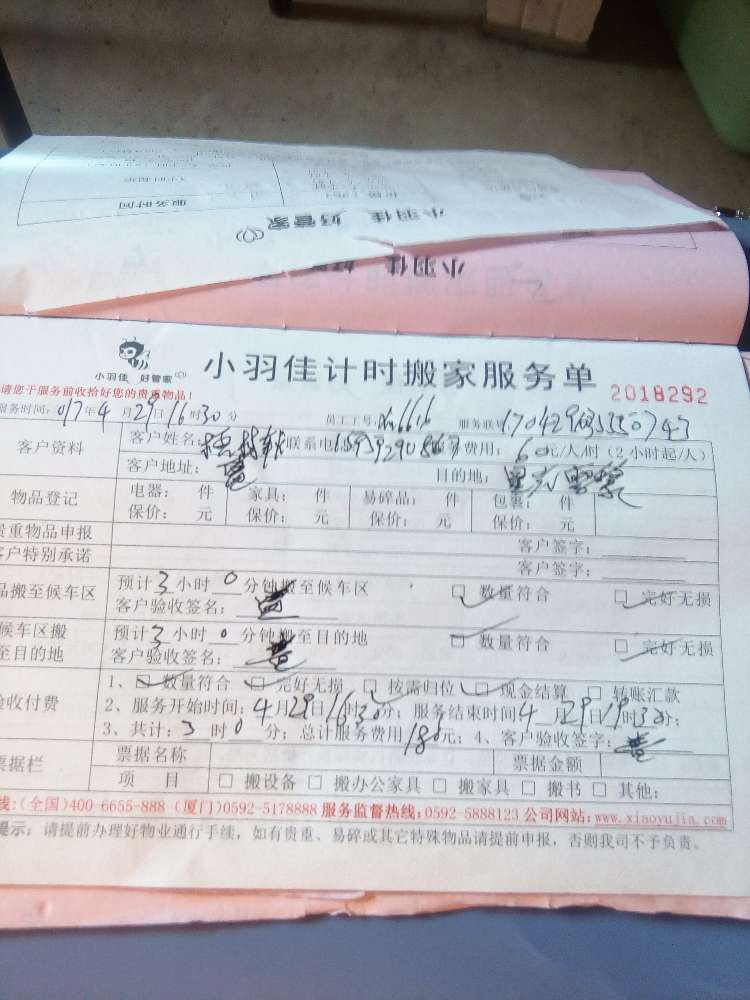 服务时间
小羽佳 好管家
小羽佳 好
小羽佳 好管家
小羽佳计时搬家服务单 2018292
请您于服务前收拾好您的贵重物品!
服务时间: 017年4月29日16时30分 员工工号: 服务联号
客户资料 客户姓名: 联系电 费用: 60元/人/时 (2小时起/人)
客户地址: 目的地:
物品登记 电器: 件 家具: 件 易碎品: 件 包裹: 件
保价: 元 保价: 元 保价: 元 保价: 元
贵重物品申报 客户签字:
客户特别承诺 客户签字:
品搬至候车区 预计3小时0分钟搬至候车区 □ 数量符合 □ 完好无损
客户验收签名:
候车区搬 预计3小时0分钟搬至目的地 □ 数量符合 □ 完好无损
至目的地 客户验收签名:
验收付费 1、□ 数量符合 □ 完好无损 □ 按需归位 □ 现金结算 □ 转账汇款
2、服务开始时间: 4月29日16时30分; 服务结束时间4月29日19时30分;
3、共计: 3时0分; 总计服务费用180元; 4、客户验收签字:
票据栏 票据名称 票据金额
项 目 □ 搬设备 □ 搬办公家具 □ 搬家具 □ 搬书 □ 其他:
线:(全国)400-6655-888 (厦门)0592-5178888 服务监督热线:0592-5888123 公司网站:www.xiaoyujia.com
提示: 请提前办理好物业通行手续, 如有贵重、易碎或其它特殊物品请提前申报, 否则我司不予负责。